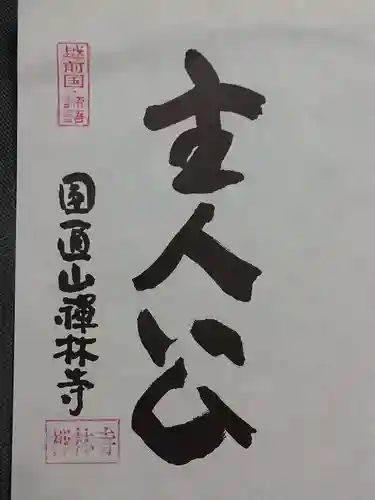 主人公
越前国・
圓通山禅林寺
禅林寺